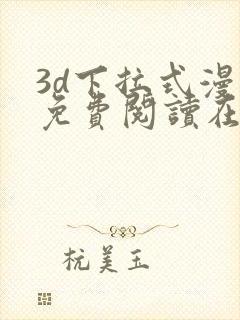 3d下拉式漫
免費閱讀在
杭美玉